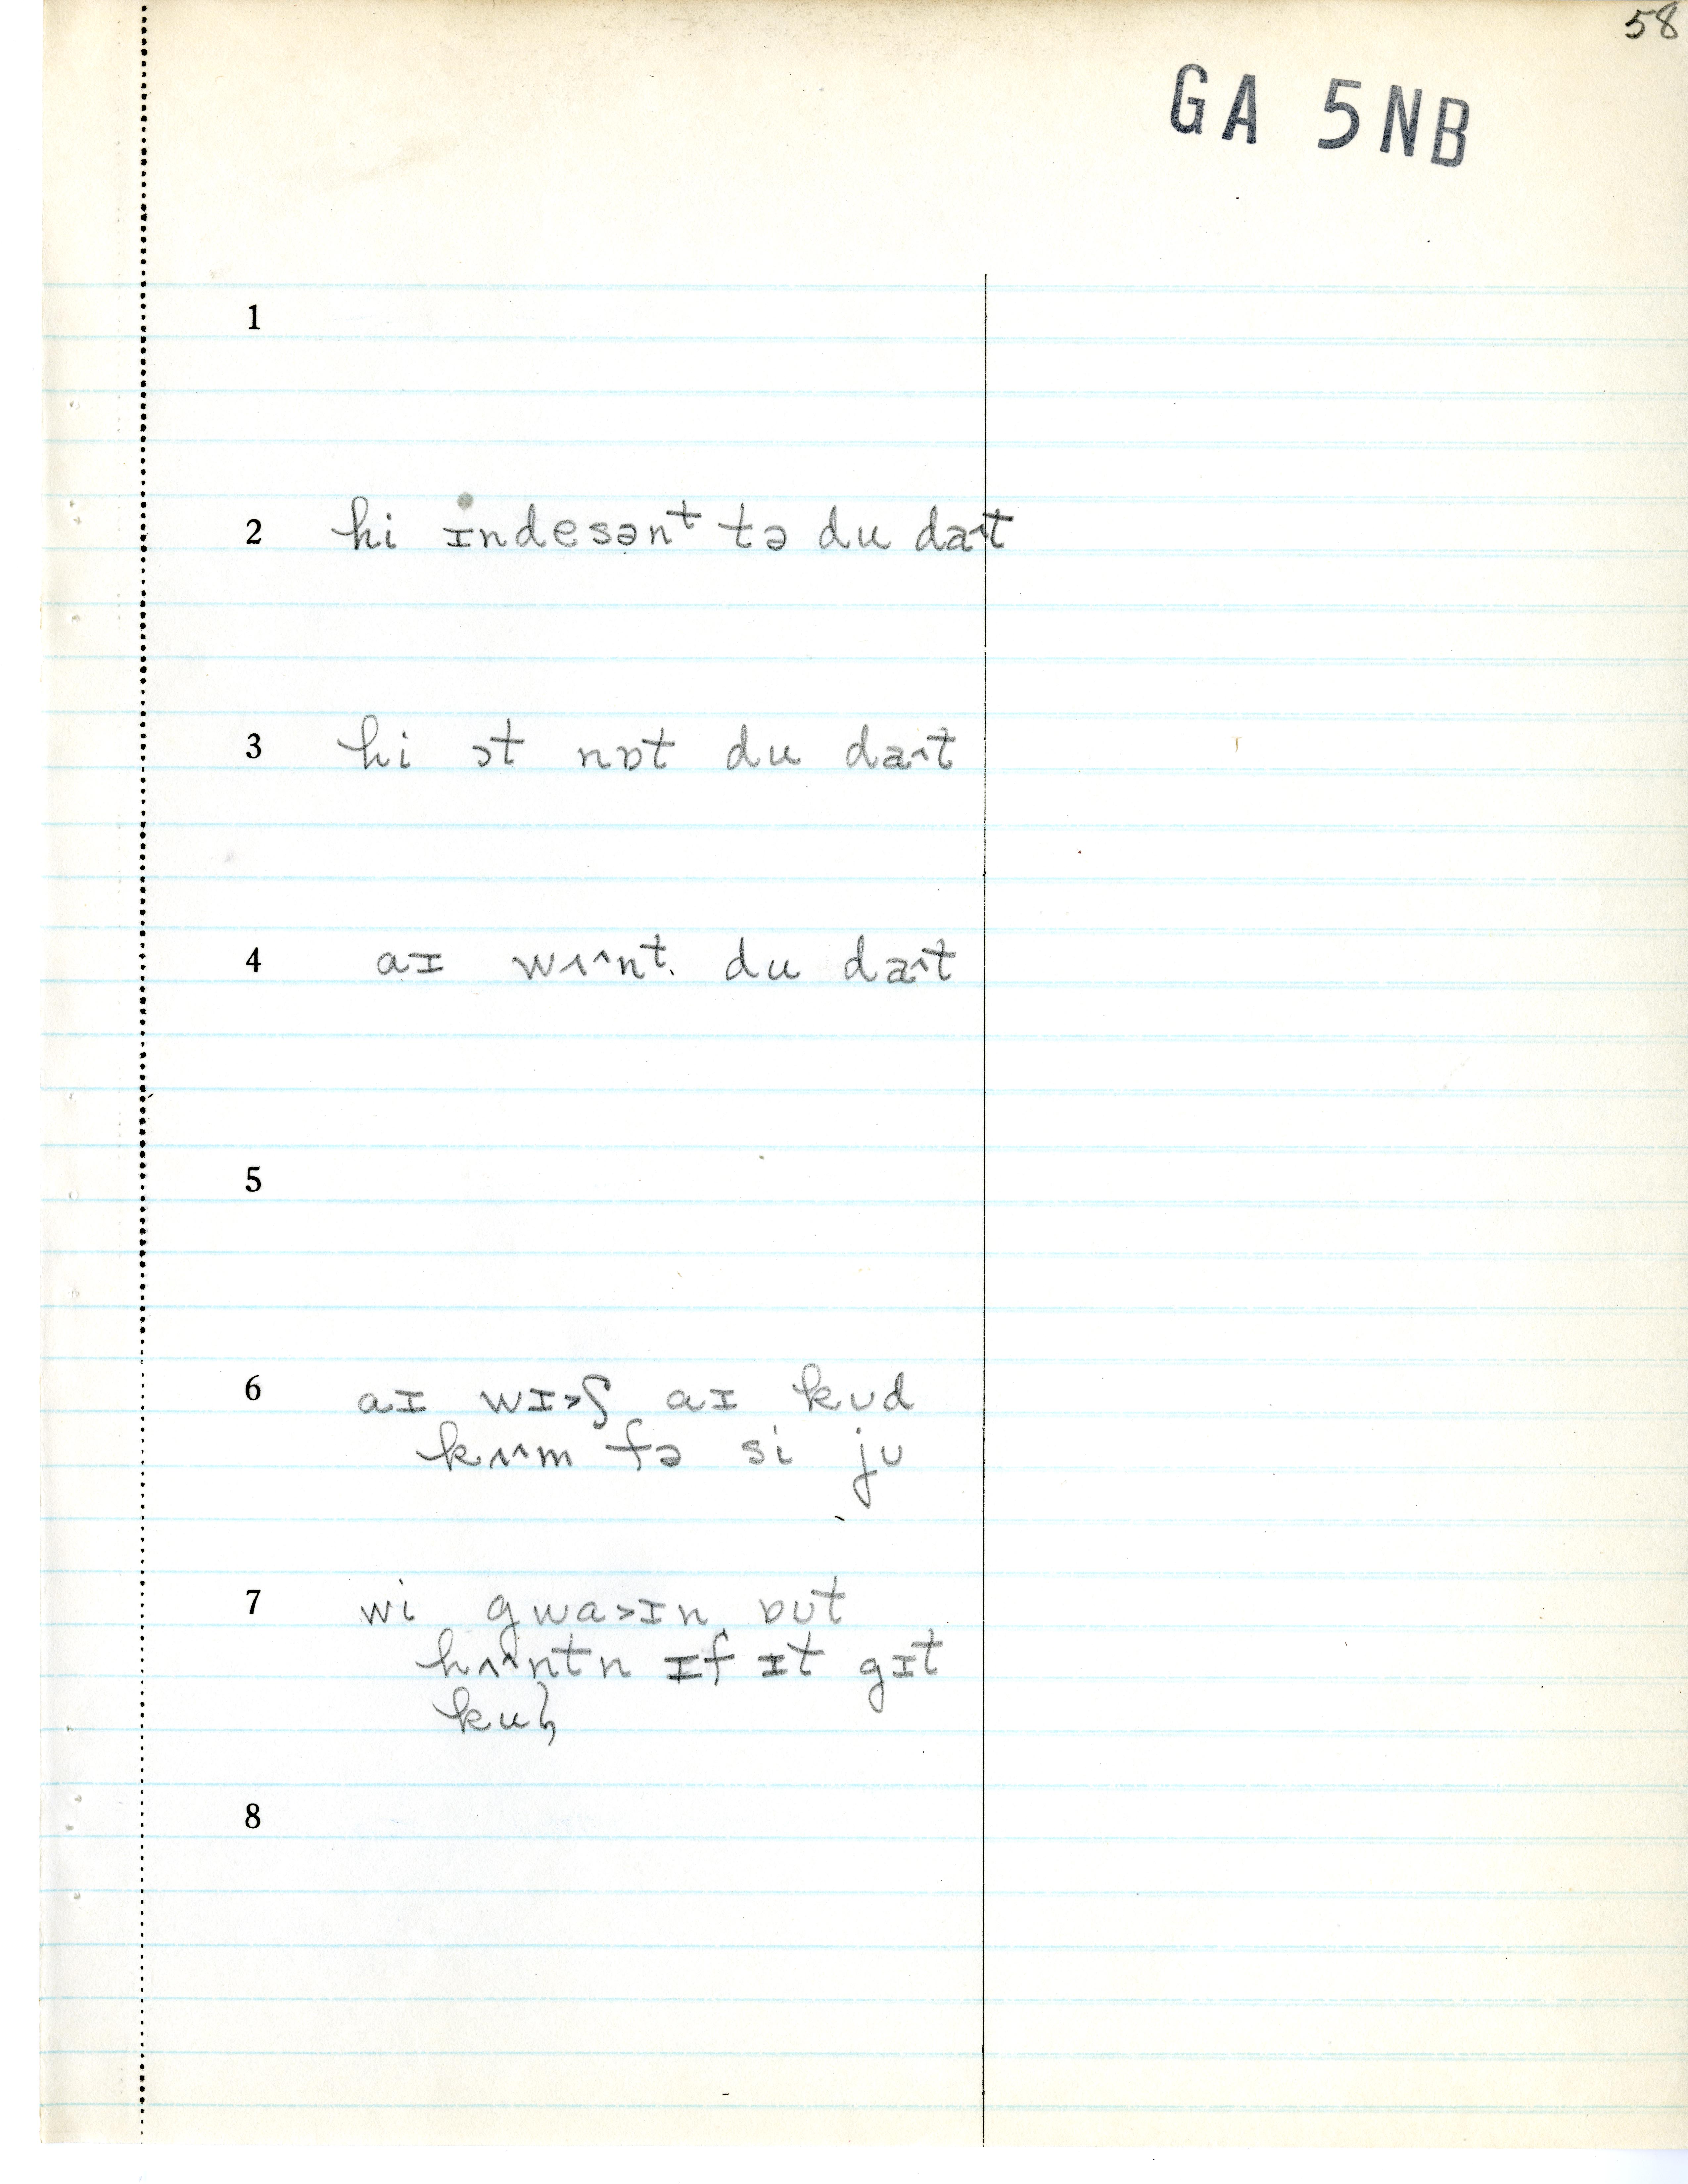 58
GA 5NB
1
2 hi ɪndesənᵗ tə du da˄t
3 hi ɔt nɒt du da˄t
4 aɪ wʌ˄nᵗ du da˄t
5
6 aɪ wɪ˃ʃ aɪ kʊd
kʌ˄m fə si jʊ
7 wi gwa˃ɪn ɒʊt
hʌ˄ntn ɪf ɪt gɪt
8